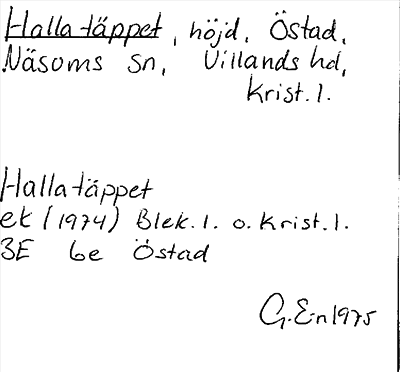 Hallatäppet, höjd, Östad,
Näsums sn, Villands hd,
Krist.l.
Hallatäppet
ek (1974) Blek.l. o. Krist.l.
3E 6e Östad
G.E-n 1975